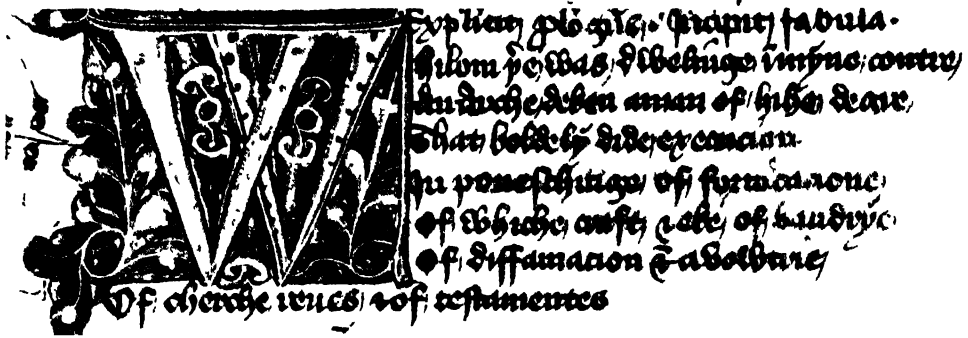 Explicit plogus. Incipit fabula.
Whilom þe was dwellinge in myne contre
An Archedeken a man of hihe degre
That boldely dide execucion
In poneschinge of fornicacione
of whiche craft & eke of baudrye
of diffamacion & avowtrie
Of cherche reues & of testamentes